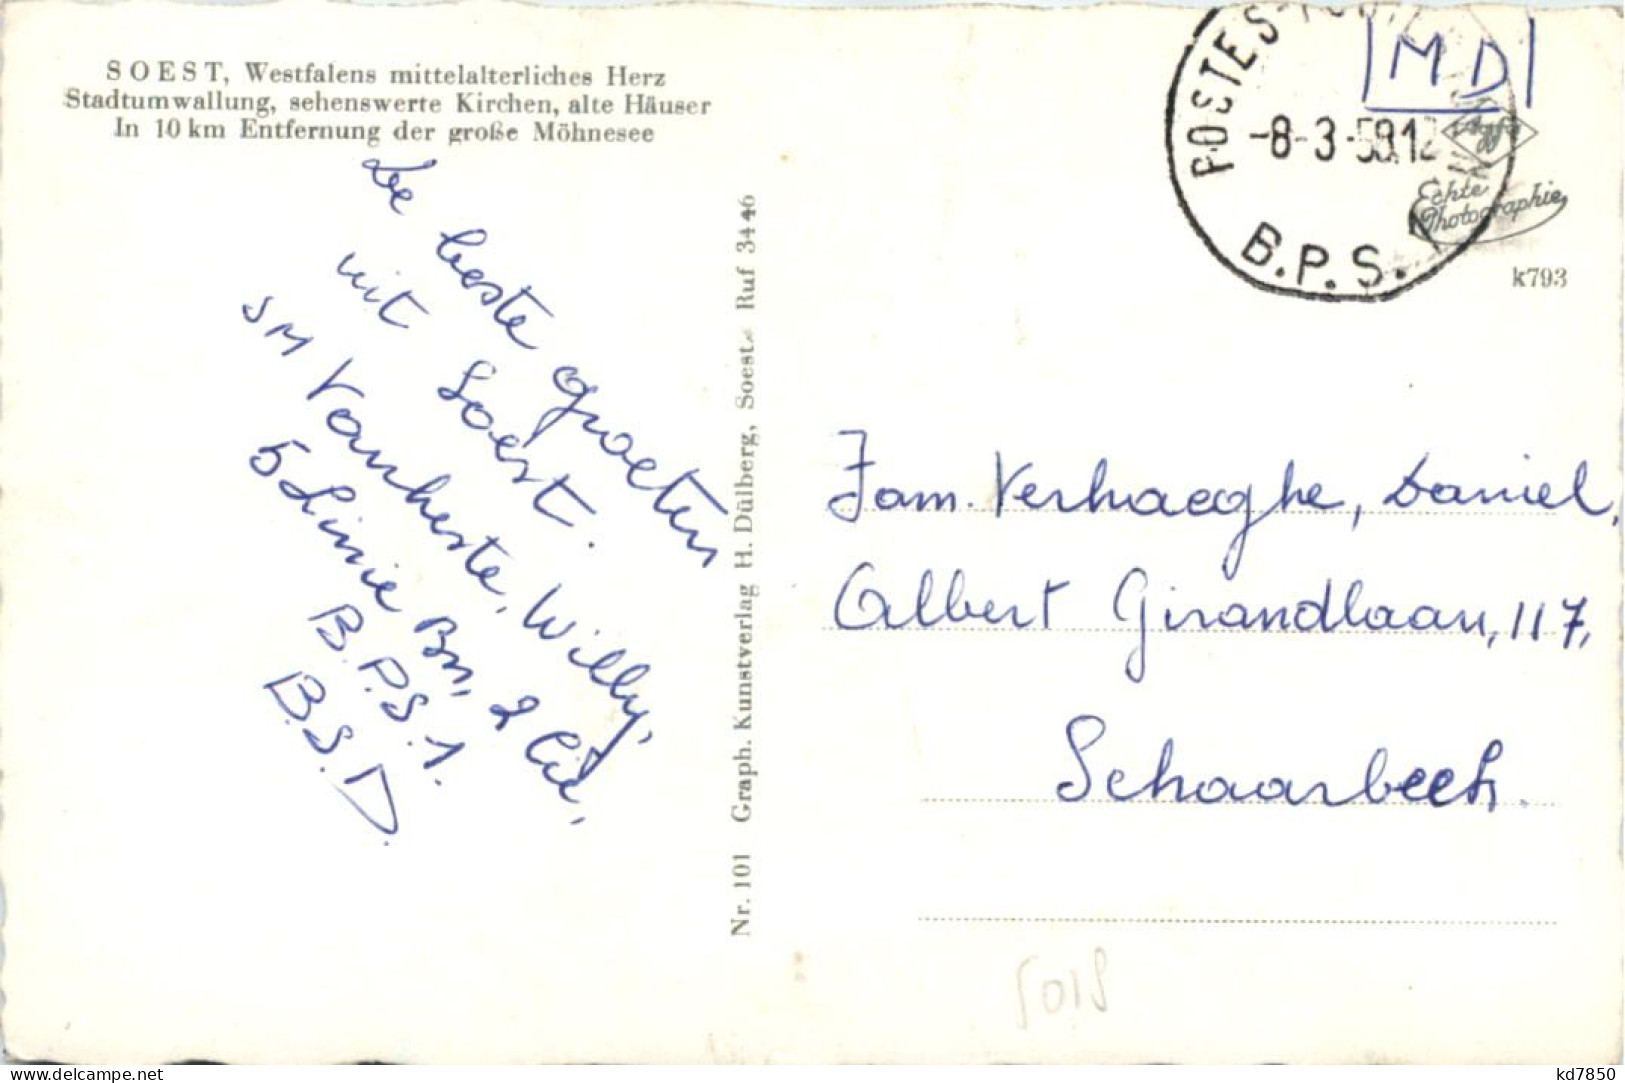 SOEST, Westfalens mittelalterliches Herz
Stadtumwallung, sehenswerte Kirchen, alte Häuser
In 10 km Entfernung der große Möhnesee
De beste groeten
uit Soest.
SM Vanheste, Willy,
5 Linie Bn, 2 Cie,
B.P.S. 1.
B.S.D.
Nr. 101 Graph. Kunstverlag H. Dülberg, Soest. Ruf 3446
POSTES-
-8-3-59.12
B.P.S. 1
MD
Agfa
Echte
Photographie
k793
Fam. Verhaeghe, Daniel,
Albert Girandlaan, 117,
Schaarbeek.
5015
kd7850